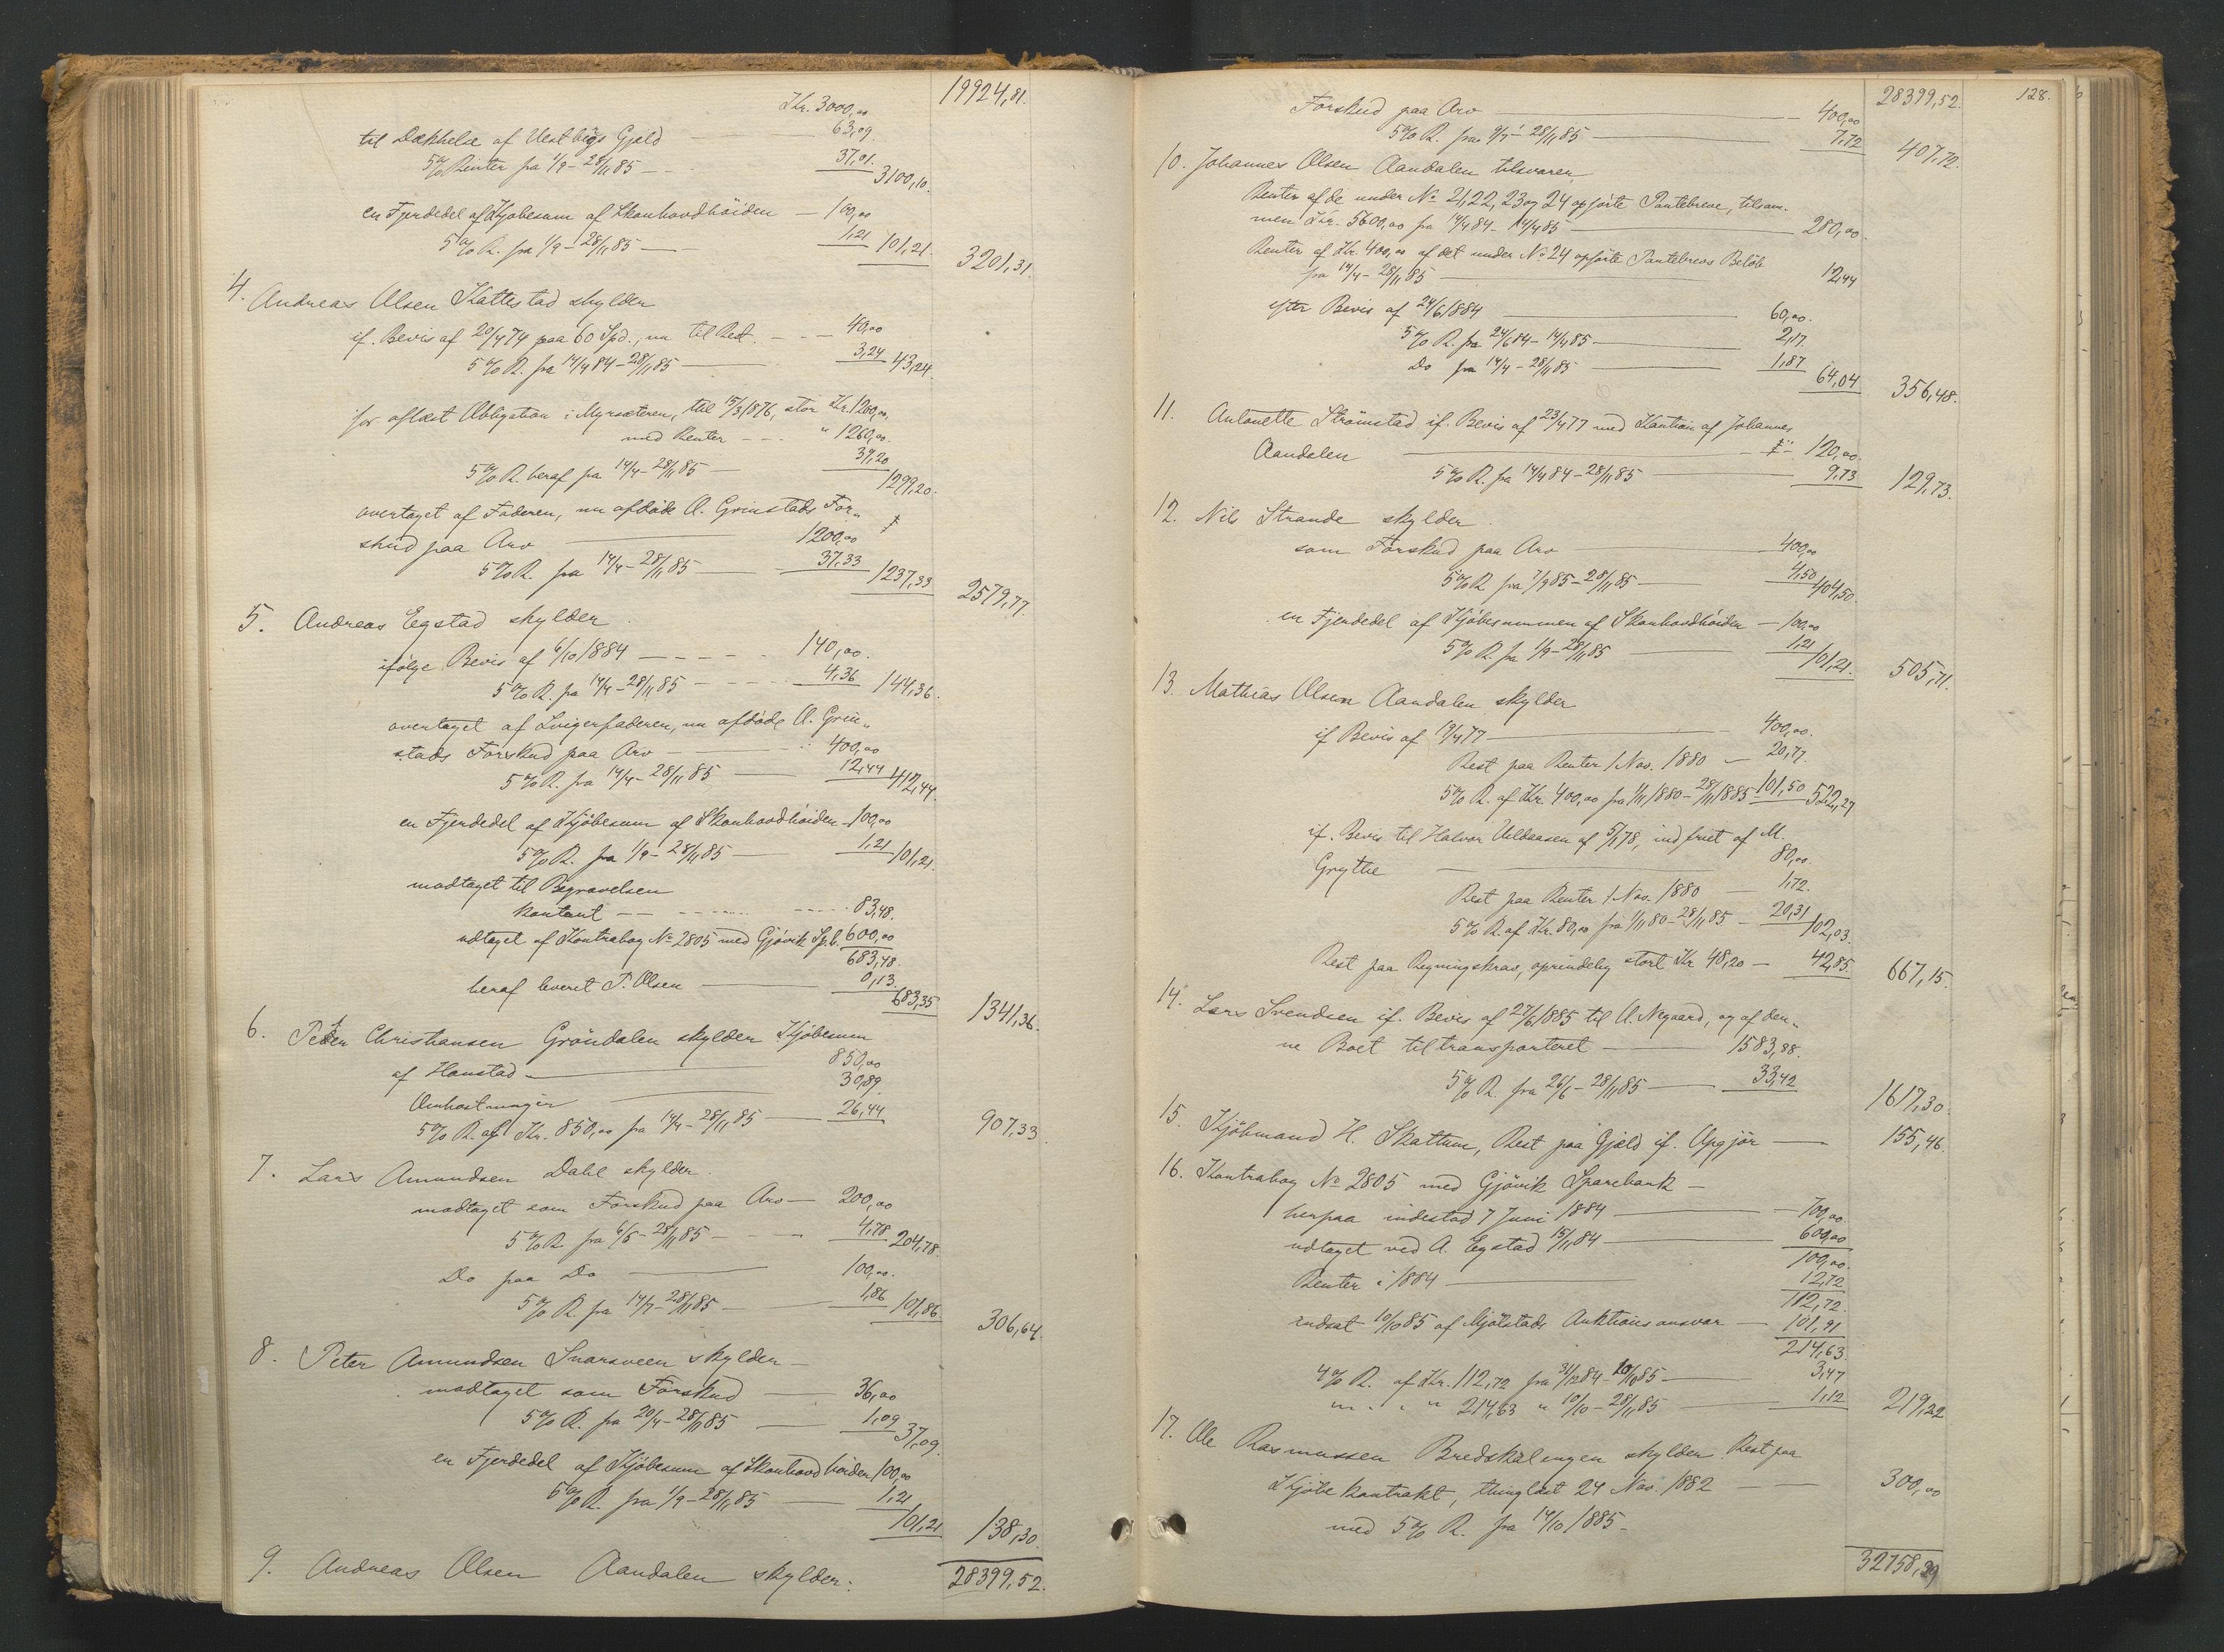 Kr. 3000,00 19924,81.
til Dækkelse af Vestbÿs Gjeld 63,09.
5% Renter fra 1/9 - 28/11 85 37,01. 3100,10.
en Fjerdedel af Kjøbesum af Skonhovdhöiden — 100,00
5% R. fra 1/9 - 28/11 85 — 1,21 101,21. 3201,31.
4. Andreas Olsen Kattestad skylder
if. Bevis af 20/4 74 paa 60 Spd., nu til Rest. — 40,00
5% R. fra 14/4 84 - 28/11 85 — 3,24 43,24.
for aflæst Obligation i Myrsæteren, thl 15/3 1876, stor Kr. 1200,00,
med Renter - - - " 1260,00.
5% R. heraf fra 14/4 - 28/11 85 — 39,20 1299,20.
overtaget af Faderen, nu afdöde O. Grinstads For-
skud paa Arv — 1200,00
5% R. fra 14/4 - 28/11 85 — 37,33 1237,33 2579,77.
5. Andreas Egstad skylder
ifölge Bevis af 6/10 1884 — 140,00.
5% R. fra 14/4 - 28/11 85 — 4,36 144,36.
overtaget af Svigerfaderen, nu afdöde O. Grin-
stads Forskud paa Arv — 400,00
5% R. fra 14/4 - 28/11 85 — 12,44 412,44.
en Fjerdedel af Kjöbesum af Skonhovdhöiden — 100,00
5% R. fra 1/9 - 28/11 85 — 1,21 101,21.
modtaget til Begravelsen
kontant — 83,48.
udtaget af Kontrabog No 2805 med Gjövik Spb. 600,00
683,48.
heraf leveret P. Olsen — 0,13. 683,35 1341,36.
6. Peder Christiansen Gröndalen skylder Kjöbesum
af Hanstad — 850,00
Omkostninger — 30,89.
5% R. af Kr. 850,00 fra 14/4 - 28/11 85 — 26,44 907,33.
7. Lars Amundsen Dahl skylder.
modtaget som Forskud paa Arv — 200,00
5% R. fra 6/5 - 28/11 85 — 4,78. 204,78.
Do paa Do — 100,00.
5% R. fra 14/7 - 28/11 85 — 1,86 101,86. 306,64.
8. Peter Amundsen Svarsveen skylder —
modtaget som Forskud — 36,00
5% R. fra 20/4 - 28/11 85 — 1,09 37,09.
en Fjerdedel af Kjöbesum af Skonhovdhöiden 100,00
5% R. fra 1/9 - 28/11 85 — 1,21 101,21 138,30.
9. Andreas Olsen Aandalen skylder: 28399,52.
28399,52. 128.
Forskud paa Arv — 400,00
5% R. fra 9/7 - 28/11 85 — 7,72 407,72.
10. Johannes Olsen Aandalen tilsvarer
Renter af de under No 21, 22, 23 og 24 opförte Pantebreve, tilsam-
men Kr. 5600,00 fra 14/4 84 - 14/4 85 — 280,00.
Renter af Kr. 400,00 af det under No 24 opförte Pantebrevs Belöb
fra 14/4 - 28/11 85 — 12,44
efter Bevis af 24/6 1884 — 60,00.
5% R. fra 24/6 84 - 14/4 85 — 2,17.
Do fra 14/4 - 28/11 85 — 1,87 64,04. 356,48.
11. Antonette Strömstad if. Bevis af 23/4 77 med Kaution af Johannes
Aandalen — 120,00.
5% R. fra 14/4 84 - 28/11 85 — 9,73 129,73.
12. Nils Strande skylder
som Forskud paa Arv — 400,00
5% R. fra 7/9 85 - 28/11 85 — 4,50 404,50.
en Fjerdedel af Kjöbesummen af Skonhovdhöiden — 100,00
5% R. fra 1/9 - 28/11 85 — 1,21 101,21. 505,71.
13. Mathias Olsen Aandalen skylder
if Bevis af 19/4 77 — 400,00.
Rest paa Renter 1 Nov. 1880 — 20,77.
5% R. af Kr. 400,00 fra 1/11 1880 - 28/11 1885 — 101,50 522,27
if. Bevis til Halvor Veldaasen af 5/1 78, indfriet af M.
Grythe — 80,00.
Rest paa Renter 1 Nov. 1880 — 1,72.
5% R. af Kr. 80,00 fra 1/11 80 - 28/11 85 — 20,31 102,03.
Rest paa Regningskrav, oprindelig stort Kr 48,20 — 42,85. 667,15.
14. Lars Svendsen if. Bevis af 27/6 1885 til O. Nygaard, og af den-
ne Boet tiltransporteret — 1583,88.
5% R. fra 26/6 - 28/11 85 — 33,42 1617,30.
15. Kjöbmand H. Skattum, Rest paa Gjæld if. Opgjör — 155,46.
16. Kontrabog No 2805 med Gjövik Sparebank —
herpaa indestod 7 Juni 1884 — 700,00.
udtaget ved A. Egstad 15/11 84 — 600,00
100,00.
Renter i 1884 — 12,72
112,72.
indsat 10/10 85 af Mjölstads Auktionsansvar — 101,91
214,63.
4% R. af Kr. 112,72 fra 31/12 84 - 10/10 85 — 3,47
" " " " 214,63 " 10/10 - 28/11 85 — 1,12 219,22
17. Ole Rasmussen Bredskalengen skylder Rest paa
Kjöbekontrakt, thinglæst 24 Nov. 1882 — 300,00
med 5% R. fra 14/10 1885 —
32758,29